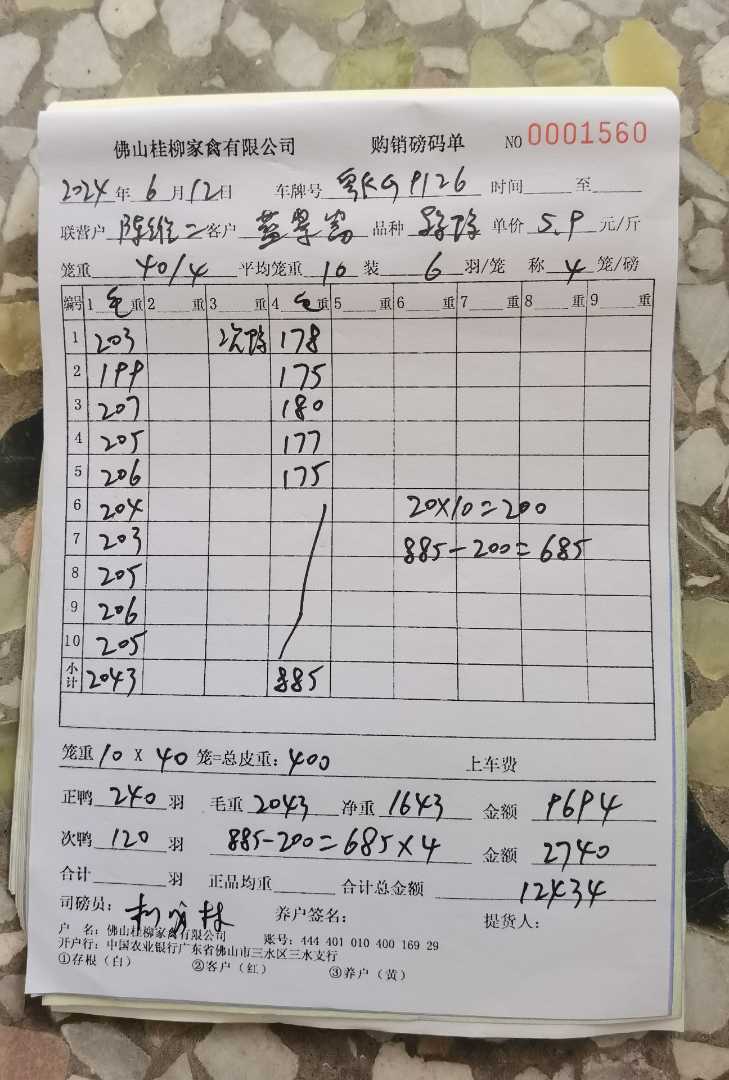 佛山桂柳家禽有限公司 购销磅码单 NO 0001560
2024 年 6 月 12 日 车牌号 粤KG9126 时间 至
联营户 陈维二 客户 品种 单价 5.9 元/斤
笼重 40/4 平均笼重 10 装 6 羽/笼 称 4 笼/磅
编号 1 毛 重 2 重 3 重 4 毛 重 5 重 6 重 7 重 8 重 9 重
1 203 次鸭 178
2 199 175
3 207 180
4 205 177
5 206 175
6 204 20×10=200
7 203 885-200=685
8 205
9 206
10 205
小计 2043 885
笼重 10 X 40 笼=总皮重: 400 上车费
正鸭 240 羽 毛重 2043 净重 1643 金额 9694
次鸭 120 羽 885-200=685×4 金额 2740
合计 羽 正品均重 合计总金额 12434
司磅员: 养户签名: 提货人:
户 名: 佛山桂柳家禽有限公司 账号: 444 401 010 400 169 29
开户行: 中国农业银行广东省佛山市三水区三水支行
①存根（白） ②客户（红） ③养户（黄）